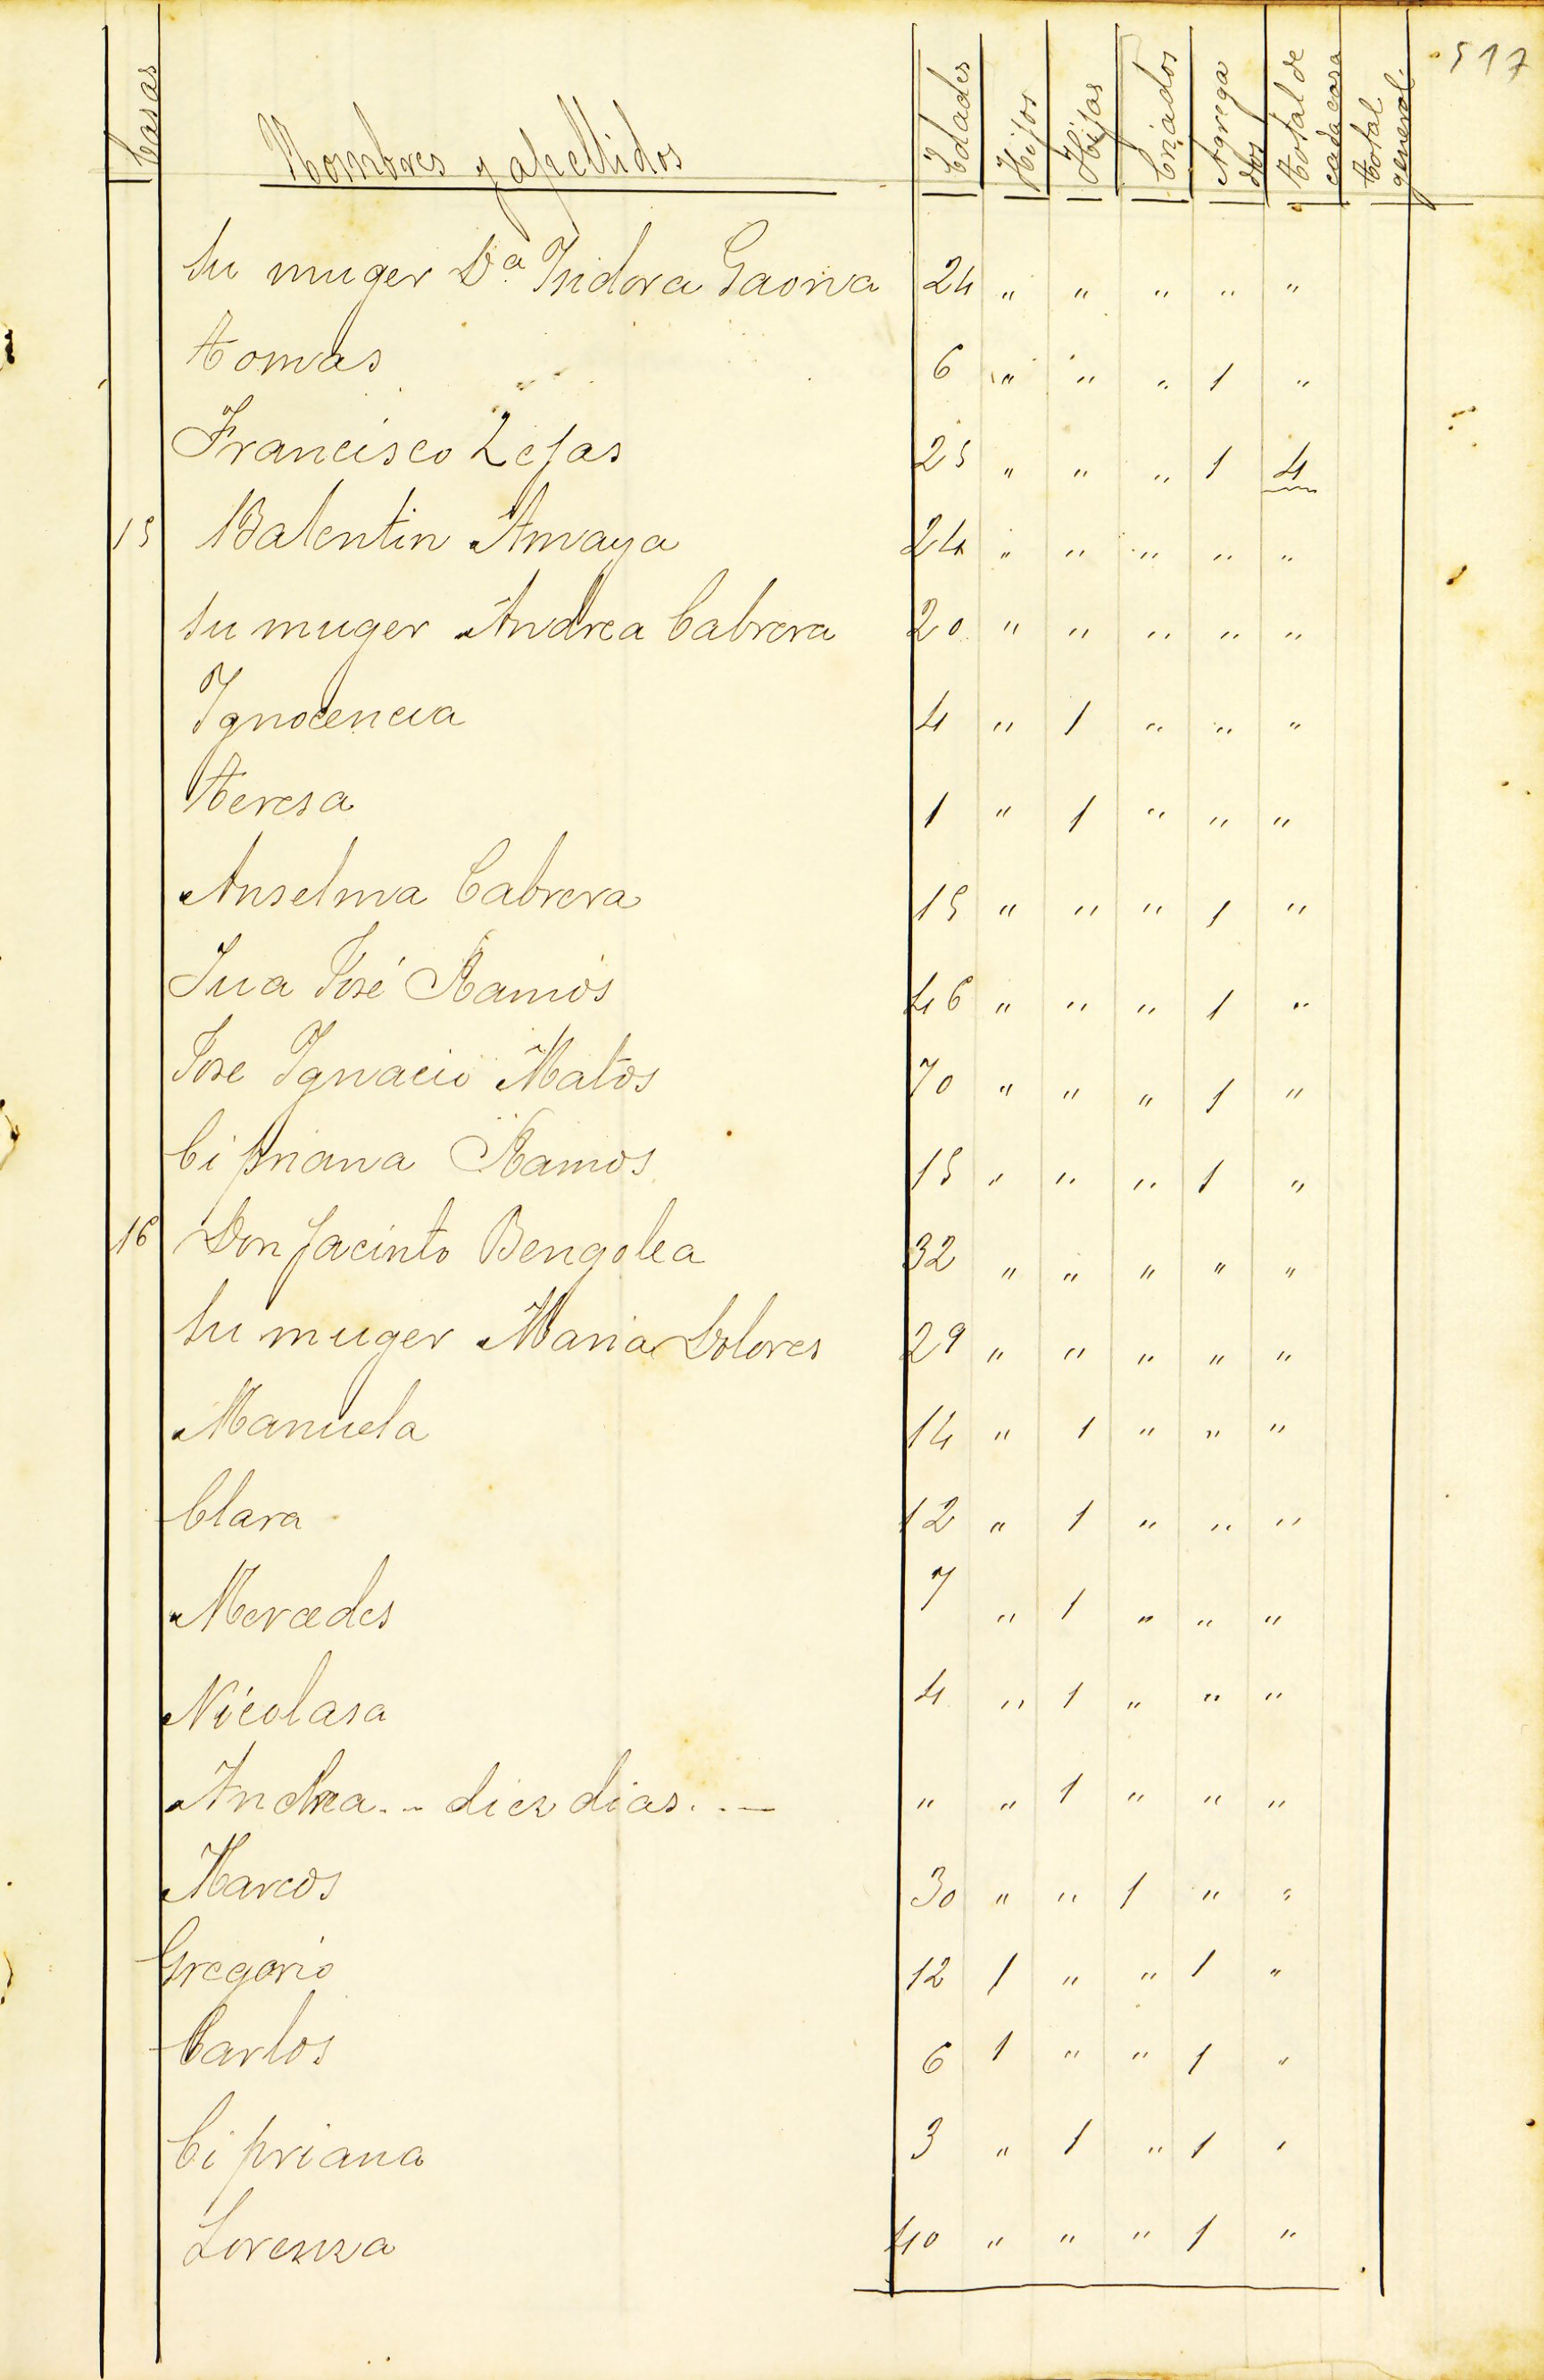 517
Casas Nombres y apellidos Edades Hijos Hijas Criados Agregados Total de cada casa Total general
Su muger Dª Isidora Gaona 24 " " " " "
Tomas 6 " " " 1 "
Francisco Zejas 25 " " " 1 4
15 Balentin Amaya 24 " " " " "
Su muger Andrea Cabrera 20 " " " " "
Ygnocencia 4 " 1 " " "
Teresa 1 " 1 " " "
Anselma Cabrera 15 " " " 1 "
Jua José Ramos 46 " " " 1 "
Jose Ygnacio Matos 70 " " " 1 "
Cipriana Ramos 15 " " " 1 "
16 Don Jacinto Bengolea 32 " " " " "
Su muger Maria Dolores 29 " " " " "
Manuela 14 " 1 " " "
Clara 12 " 1 " " "
Mercedes 7 " 1 " " "
Nicolasa 4 " 1 " " "
Andrea - - diez dias . . — " " 1 " " "
Marcos 30 " " 1 " "
Gregorio 12 1 " " 1 "
Carlos 6 1 " " 1 "
Cipriana 3 " 1 " 1 "
Lorenza 40 " " " 1 "